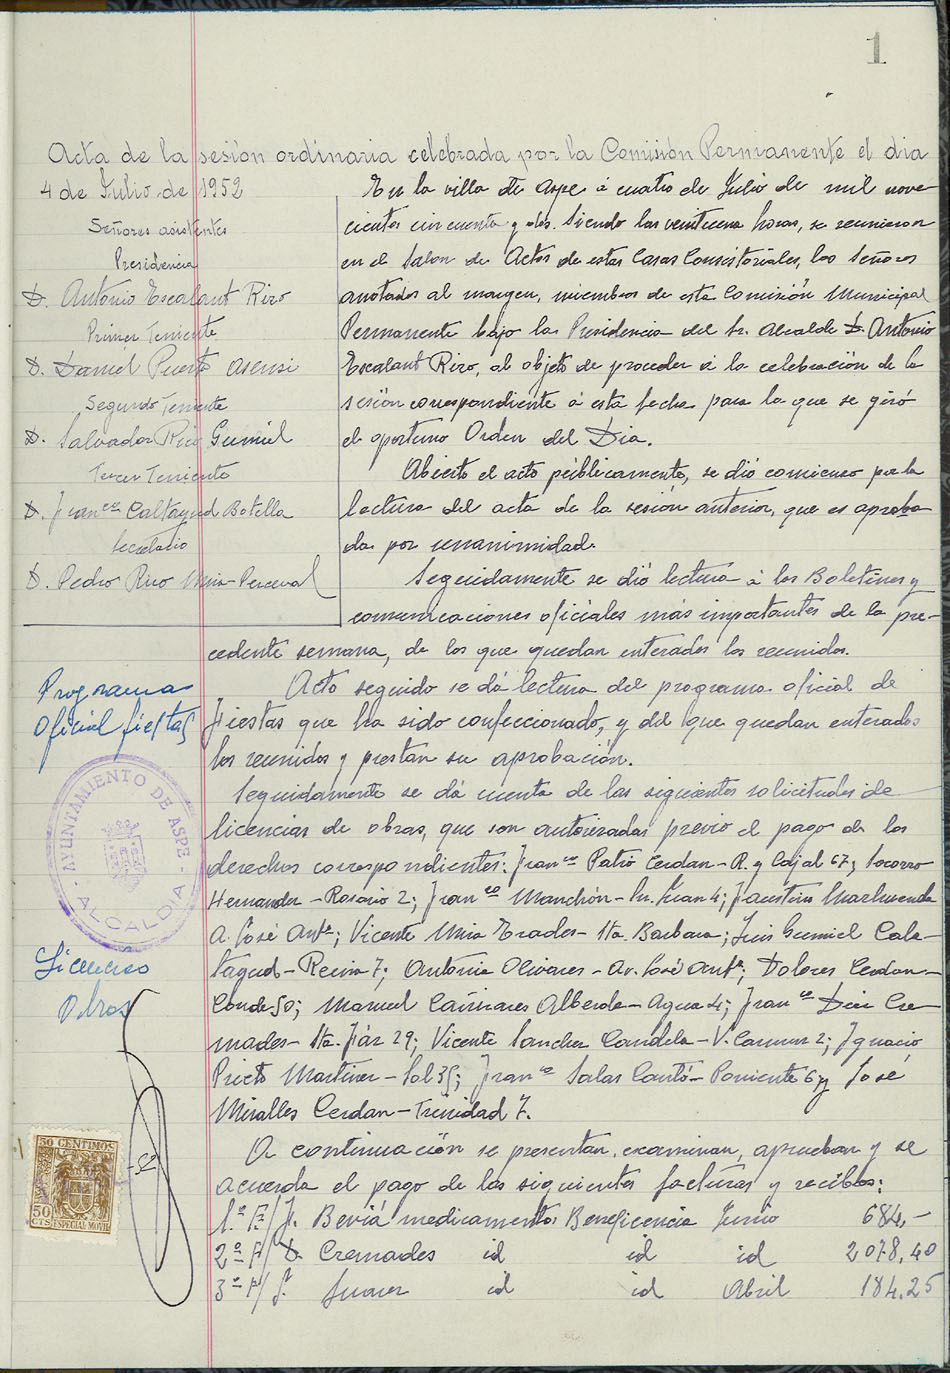 1
Acta de la sesión ordinaria celebrada por la Comisión Permanente el dia
4 de Julio de 1952
Señores asistentes
Presidencia
D. Antonio Escalant Rizo
Primer Teniente
D. Daniel Puerto Asensi
Segundo Teniente
D. Salvador Rico Gumiel
Tercer Teniente
D. Franco Caltayud Botella
Secretario
D. Pedro Rizo Mira-Perceval
En la villa de Aspe a cuatro de Julio de mil nove-
cientos cincuenta y dos. Siendo las veintiuna horas, se reunieron
en el Salon de Actos de estas Casas Consistoriales, los Señores
anotados al margen, miembros de esta Comisión Municipal
Permanente bajo la Presidencia del Sr. Alcalde D. Antonio
Escalant Rizo, al objeto de proceder a la celebración de la
sesión correspondiente a esta fecha para la que se giró
el oportuno Orden del Dia.
Abierto el acto públicamente, se dió comienzo por la
lectura del acta de la sesión anterior, que es aproba-
da por unanimidad.
Seguidamente se dió lectura a los Boletines y
comunicaciones oficiales más importantes de la pre-
cedente semana, de los que quedan enterados los reunidos.
Programa
Oficial fiestas
Acto seguido se dá lectura del programa oficial de
fiestas que ha sido confeccionado, y del que quedan enterados
los reunidos y prestan su aprobación.
AYUNTAMIENTO DE ASPE
- ALCALDIA -
Seguidamente se dá cuenta de las siguientes solicitudes de
licencias de obras, que son autorizadas previo el pago de los
derechos correspondientes: Franco Patió Cerdan - R. y Cajal 67; Socorro
Hernandez - Rosario 2; Franco Manchón - Sn. Juan 4; Faustina Marhuenda
A. José Anto; Vicente Mira Erades - Sta. Barbara; Luis Gumiel Cala-
tayud - Reina 7; Antonia Olivares - Av. José Anto; Dolores Cerdan -
Conde 50; Manuel Cañizares Alberola - Agua 4; Franco Diez Cre-
mades - Sta. Faz 29; Vicente Sanchez Candela - V. Carmen 2; Ignacio
Prieto Martinez - Sol 35; Franco Salas Cantó - Poniente 6 y José
Miralles Cerdan - Trinidad 7.
Licencias
Obras
A continuación se presentan, examinan, aprueban y se
acuerda el pago de las siguientes facturas y recibos:
1º F/ J. Beviá medicamentos Beneficencia Junio 684,-
2º F/ D. Cremades id id id 2078,40
3º F/ J. Suarez id id Abril 184,25
50 CENTIMOS
50
CTS ESPECIAL MOVIL